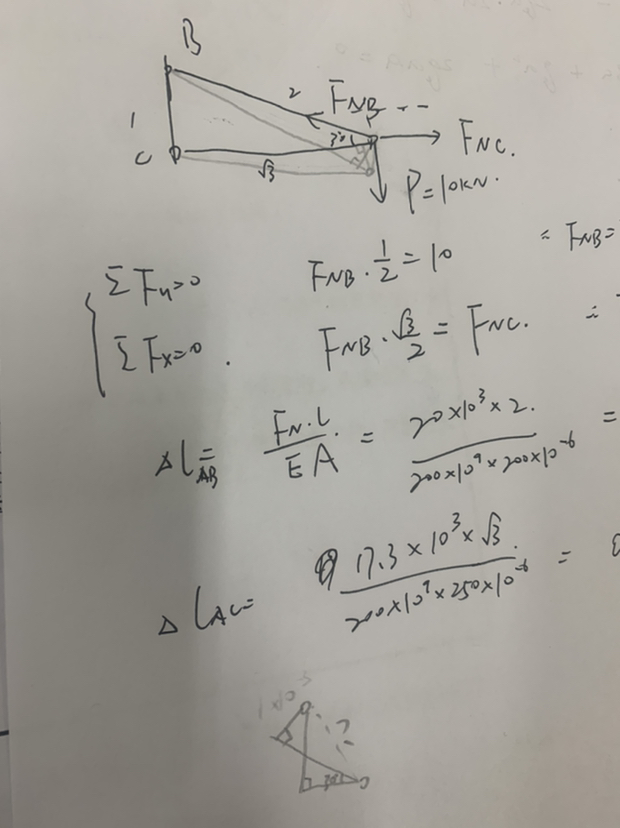 B
2
F_NB
1
30°
F_NC.
C
√3
P=10kN.
ΣF_y=0 F_NB·1/2=10 = F_NB=
ΣF_x=0. F_NB·√3/2=F_NC. =
Δl_AB= F_N·l/EA = 20×10³×2./200×10⁹×200×10⁻⁶ =
Δl_AC= 17.3×10³×√3./200×10⁹×250×10⁻⁶ =
30°